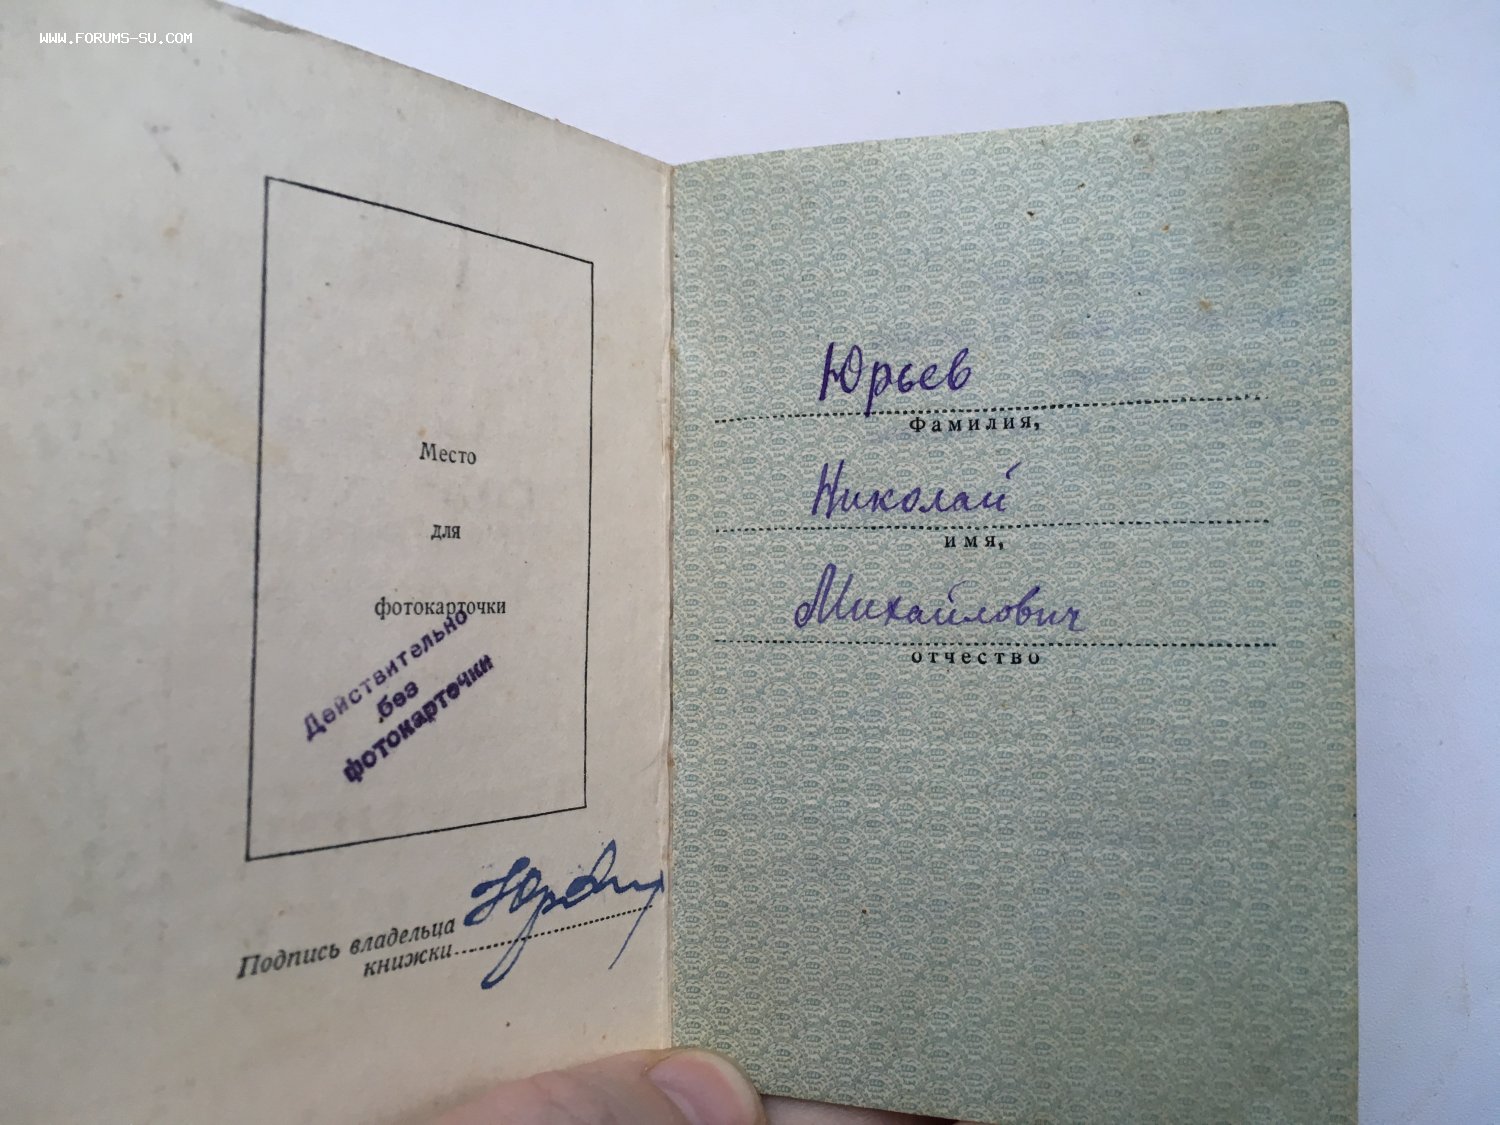 WWW.FORUMS-SU.COM
Место
для
фотокарточки
Действительно
без
фотокарточки
Подпись владельца
книжки
Юрьев
Фамилия,
Николай
имя,
Михайлович
отчество